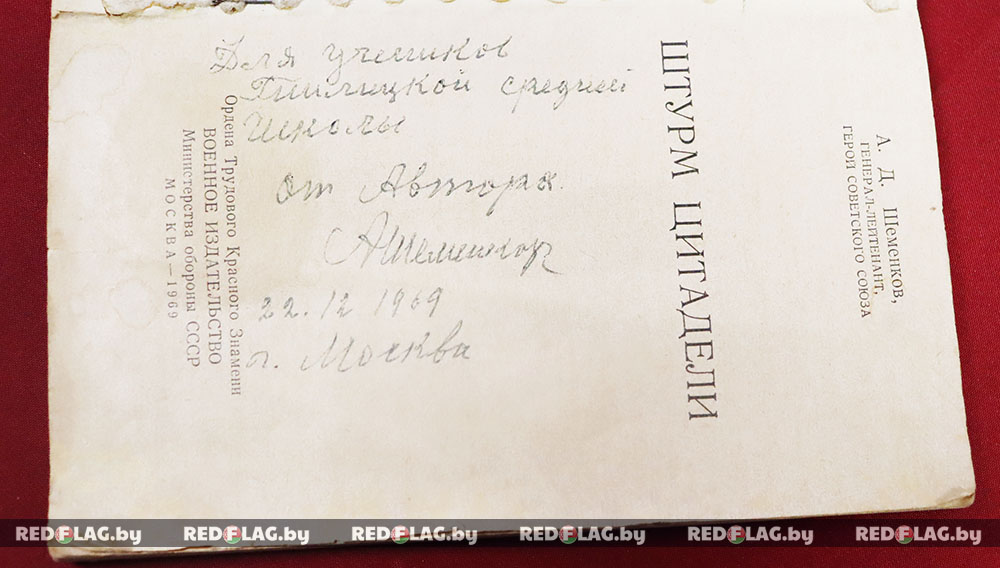 А. Д. Шеменков,
ГЕНЕРАЛ-ЛЕЙТЕНАНТ,
ГЕРОЙ СОВЕТСКОГО СОЮЗА
ШТУРМ ЦИТАДЕЛИ
Для учеников
средней
школы
от Автора
АШеменков
22.12 1969
г. Москва
Ордена Трудового Красного Знамени
ВОЕННОЕ ИЗДАТЕЛЬСТВО
Министерства обороны СССР
МОСКВА — 1969
REDFLAG.by REDFLAG.by REDFLAG.by REDFLAG.by REDFLAG.by REDFLAG.by